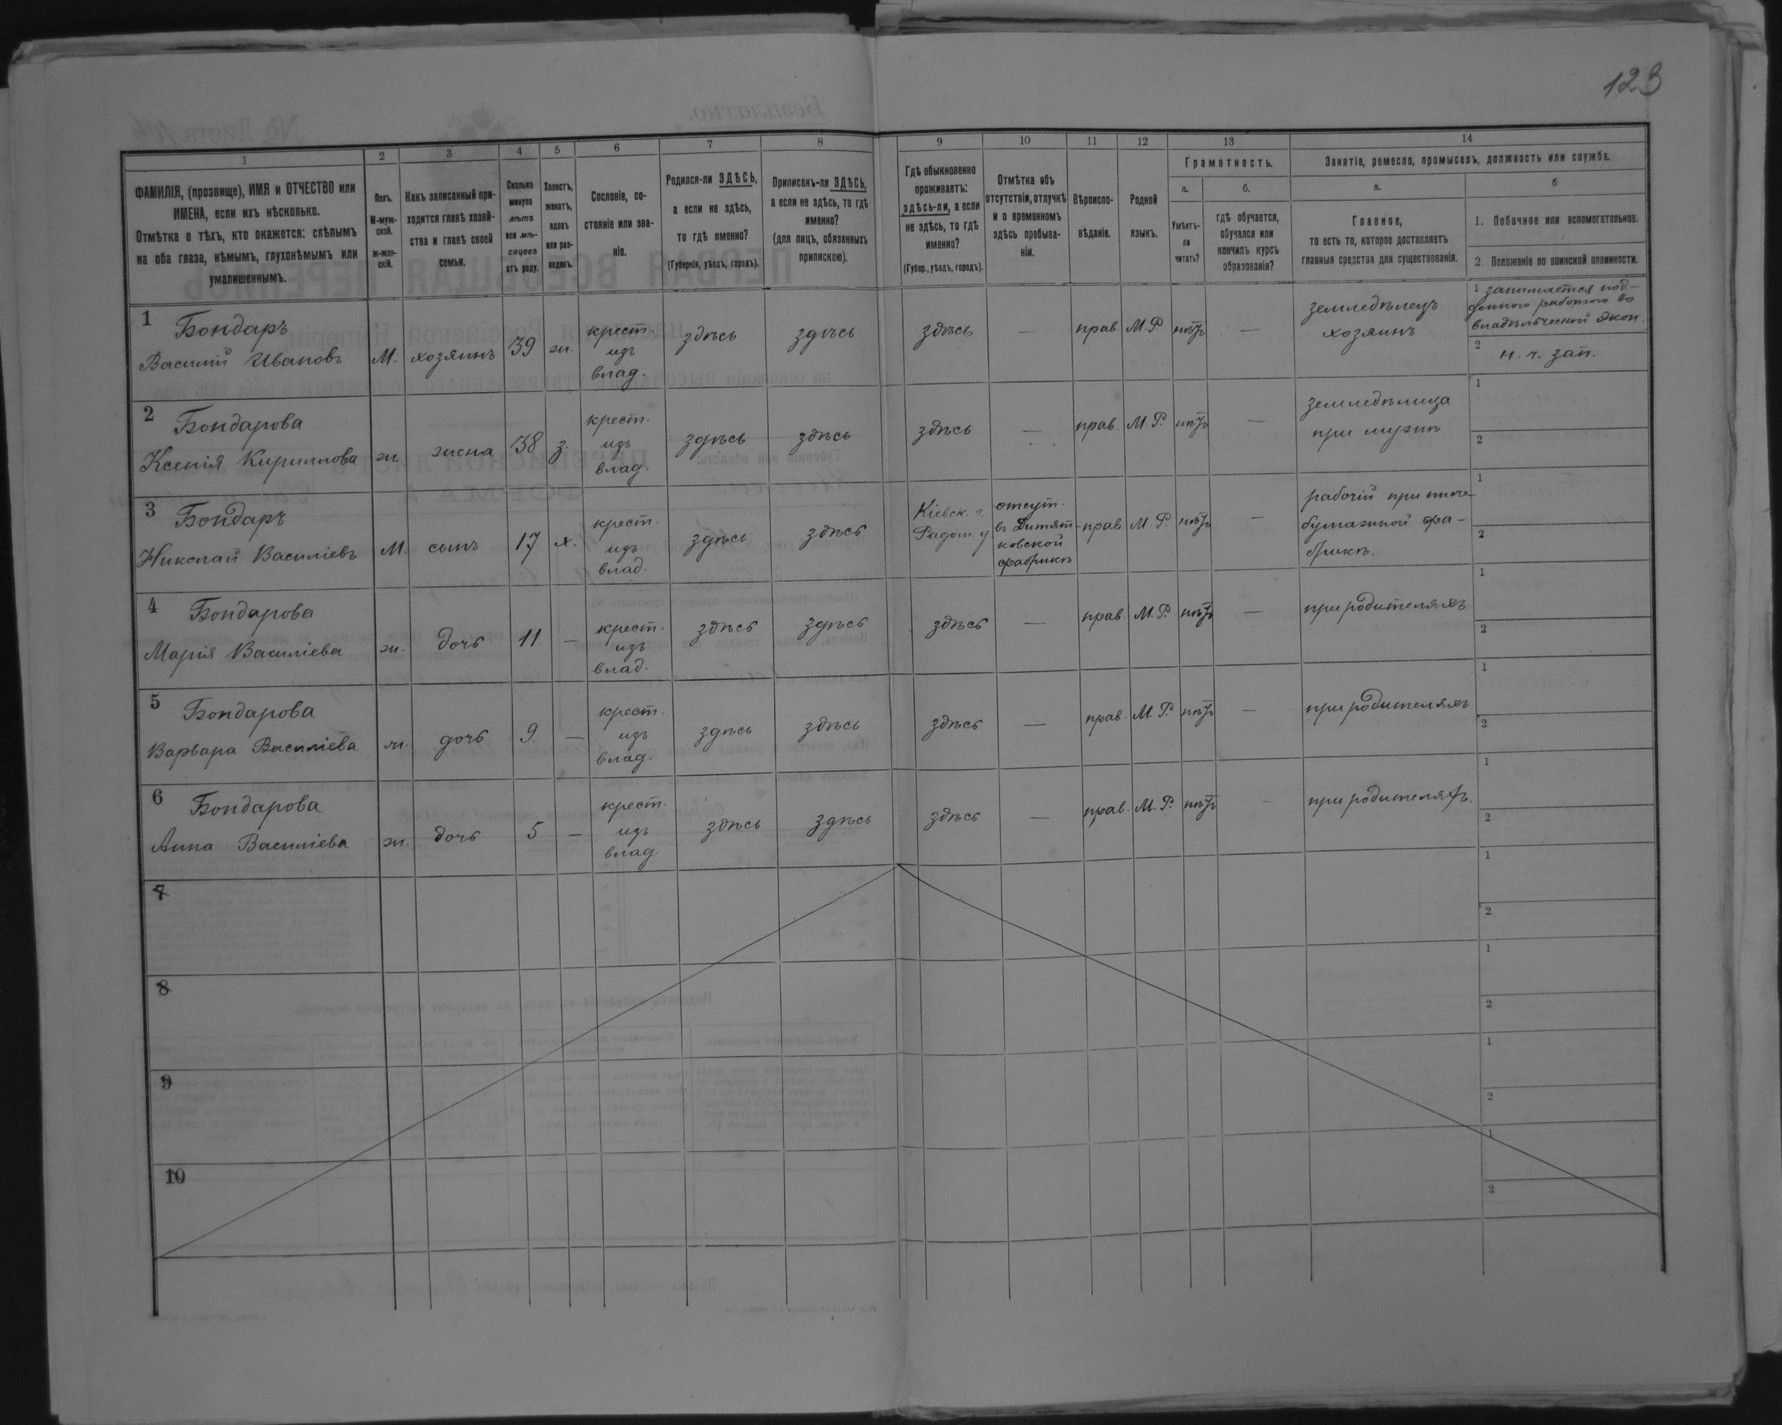 123
1
2
3
4
5
6
7
8
9
10
11
12
13
14
ФАМИЛІЯ, (прозвище), ИМЯ и ОТЧЕСТВО или
ИМЕНА, если ихъ нѣсколько.
Отмѣтка о тѣхъ, кто окажется: слѣпымъ
на оба глаза, нѣмымъ, глухонѣмымъ или
умалишеннымъ.
Полъ.
М-муж-
ской.
ж-жен-
скій.
Какъ записанный при-
ходится главѣ хозяй-
ства и главѣ своей
семьи.
Сколько
минуло
лѣтъ
или мѣ-
сяцевъ
отъ роду.
Холостъ,
женатъ,
вдовъ
или раз-
веденъ.
Сословіе, со-
стояніе или зва-
ніе.
Родился-ли ЗДѢСЬ,
а если не здѣсь,
то гдѣ именно?
(Губернія, уѣздъ, городъ).
Приписанъ-ли ЗДѢСЬ,
а если не здѣсь, то гдѣ
именно?
(для лицъ, обязанныхъ
припискою).
Гдѣ обыкновенно
проживаетъ:
здѣсь-ли, а если
не здѣсь, то гдѣ
именно?
(Губер., уѣздъ, городъ).
Отмѣтка объ
отсутствіи, отлучкѣ
и о временномъ
здѣсь пребыва-
ніи.
Вѣроиспо-
вѣданіе.
Родной
языкъ.
Грамотность.
а.
Умѣетъ-
ли
читать?
б.
гдѣ обучается,
обучался или
кончилъ курсъ
образованія?
Занятіе, ремесло, промыселъ, должность или служба.
а.
Главное,
то есть то, которое доставляетъ
главныя средства для существованія.
б
1. Побочное или вспомогательное.
2. Положеніе по воинской повинности.
1 Бондаръ
Василий Ивановъ
М. хозяинъ 39 ж.
крест.
изъ
влад.
здѣсь здѣсь здѣсь — прав. М.Р. нѣтъ —
земледѣлецъ
хозяинъ
1 занимается под-
еннаго работою во
владѣльческой экон.
2 н. ч. зап.
2 Бондарова
Ксенія Кириллова
ж. жена 38 з.
крест.
изъ
влад.
здѣсь здѣсь здѣсь — прав. М.Р. нѣтъ —
земледѣлица
при мужѣ
1
2
3 Бондаръ
Николай Василіевъ
М. сынъ 17 х.
крест.
изъ
влад.
здѣсь здѣсь
Кіевск. г.
Радом. у
отсут.
въ Дитят-
ковской
фабрикѣ
прав. М.Р. нѣтъ —
рабочій при писче-
бумажной фа-
брикѣ.
1
2
4 Бондарова
Марія Василіева
ж. дочь 11 —
крест.
изъ
влад.
здѣсь здѣсь здѣсь — прав. М.Р. нѣтъ —
при родителяхъ
1
2
5 Бондарова
Варвара Василіева
ж. дочь 9 —
крест.
изъ
влад.
здѣсь здѣсь здѣсь — прав. М.Р. нѣтъ —
при родителяхъ
1
2
6 Бондарова
Анна Василіева
ж. дочь 5 —
крест.
изъ
влад.
здѣсь здѣсь здѣсь — прав. М.Р. нѣтъ —
при родителяхъ.
1
2
7
1
2
8
1
2
9
1
2
10
1
2